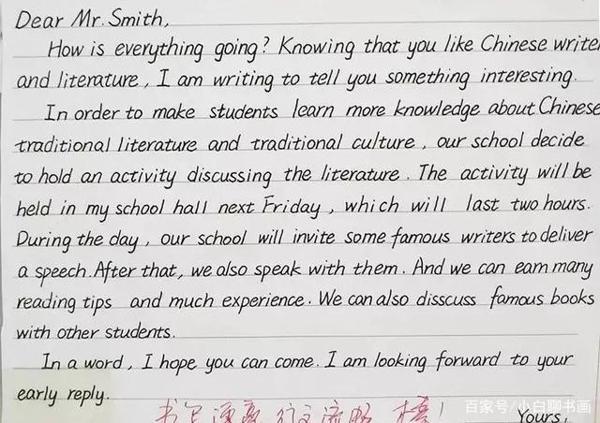 Dear Mr. Smith,
How is everything going? Knowing that you like Chinese write
and literature, I am writing to tell you something interesting.
In order to make students learn more knowledge about Chinese
traditional literature and traditional culture, our school decide
to hold an activity discussing the literature. The activity will be
held in my school hall next Friday, which will last two hours.
During the day, our school will invite some famous writers to deliver
a speech. After that, we also speak with them. And we can earn many
reading tips and much experience. We can also disscuss famous books
with other students.
In a word, I hope you can come. I am looking forward to your
early reply.
书写漂亮 行文流畅 棒!
百家号/小白聊书画
Yours,